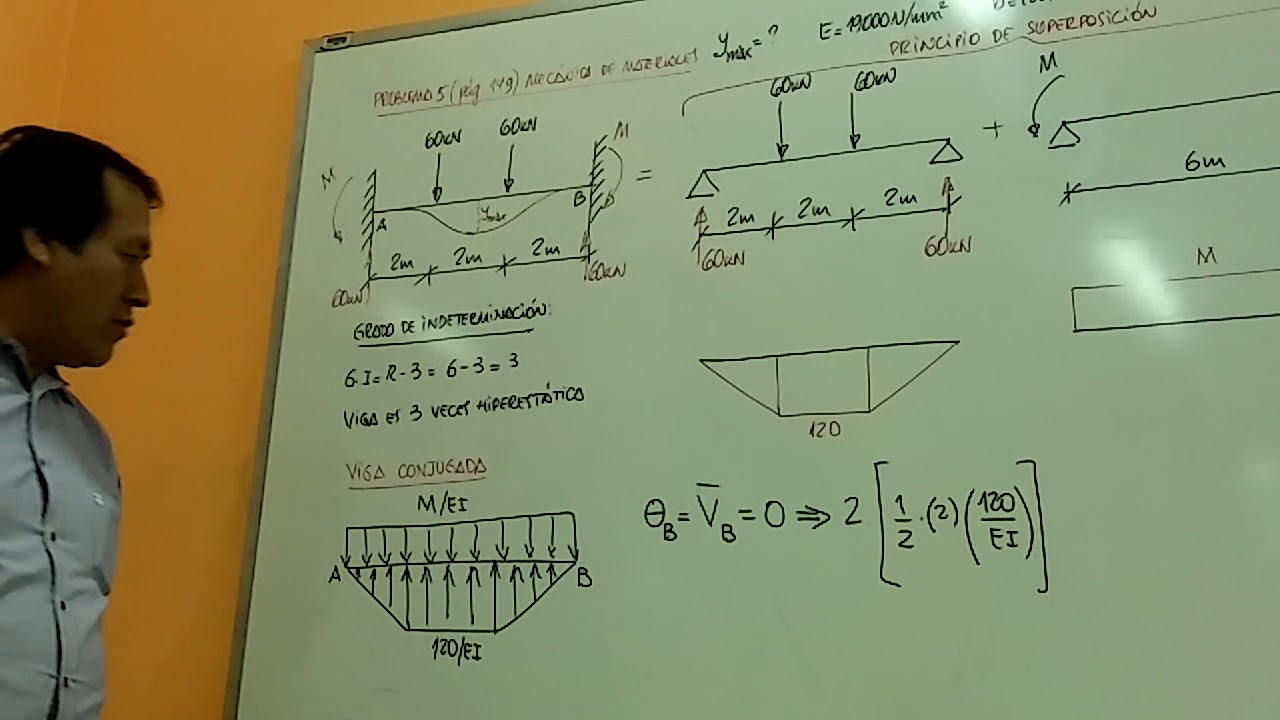 PROBLEMA 5 (pág 149) MECÁNICA DE MATERIALES
ymáx = ?
E = 19,000 N/mm²
PRINCIPIO DE SUPERPOSICIÓN
60kN 60kN
M M
A B
ymáx
2m 2m 2m
60kN 60kN
=
60kN 60kN
2m 2m 2m
60kN 60kN
+
M
6m
M
120
GRADO DE INDETERMINACIÓN:
G.I = R - 3 = 6 - 3 = 3
VIGA ES 3 VECES HIPERESTÁTICA
VIGA CONJUGADA
M/EI
A B
120/EI
θB = V̄B = 0 ⇒ 2 [1/2 · (2) (120/EI)]